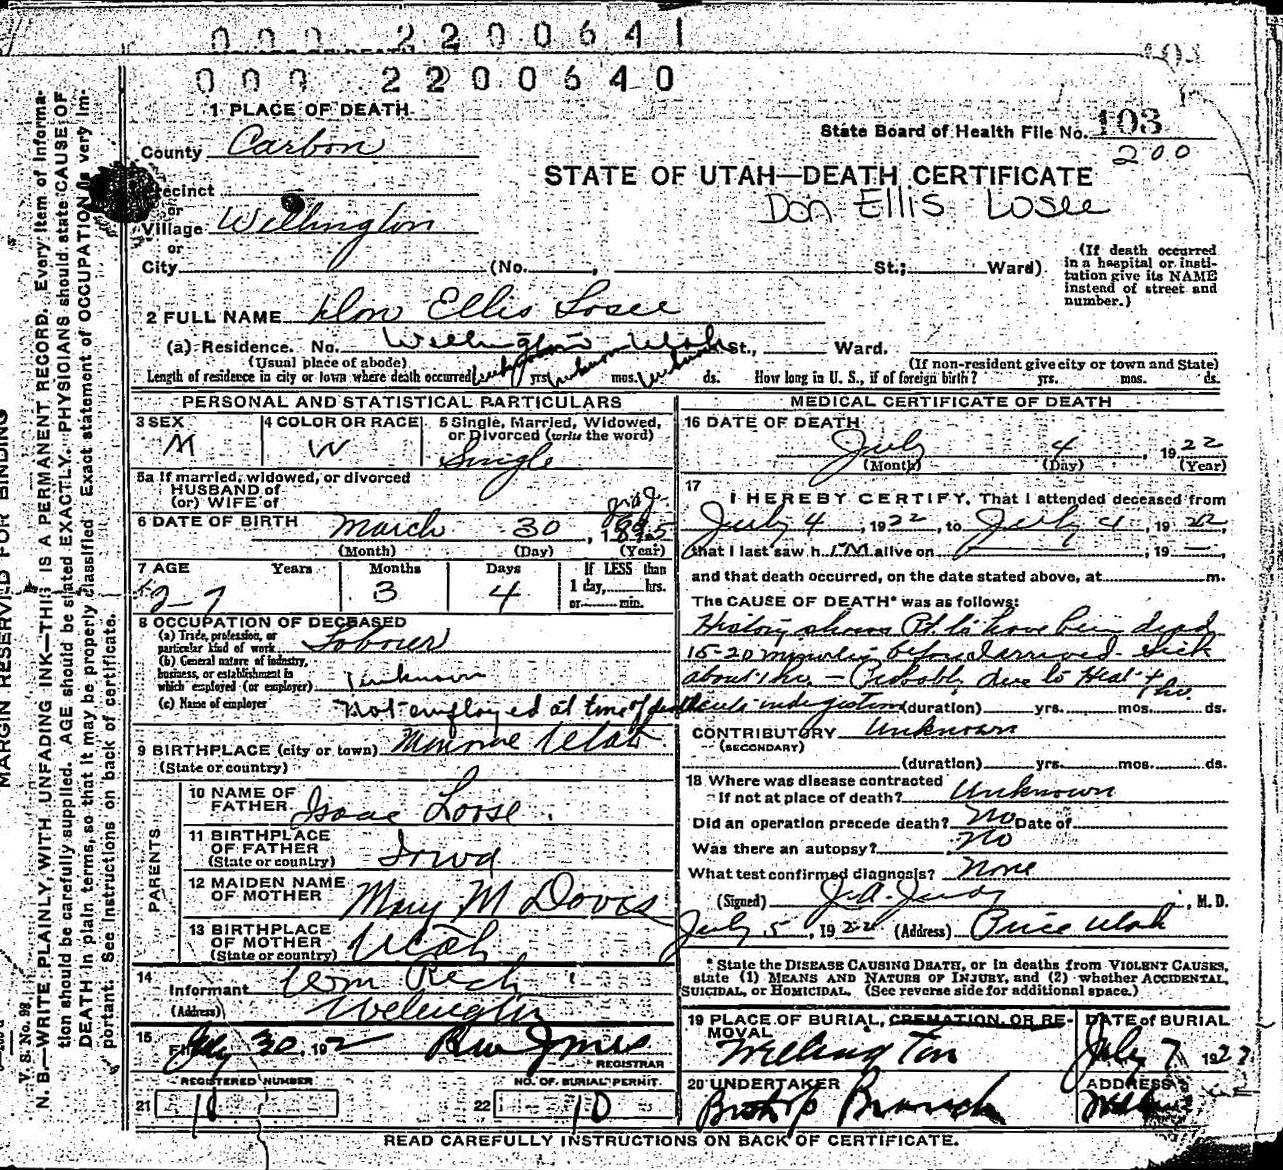 0 0 0 2 2 0 0 6 4 1
0 0 0 2 2 0 0 6 4 0
103
1 PLACE OF DEATH
County Carbon
State Board of Health File No. 103
200
Precinct
or
Village Wellington
or
STATE OF UTAH—DEATH CERTIFICATE
Don Ellis Losee
City (No. , St.; Ward)
(If death occurred
in a hospital or insti-
tution give its NAME
instead of street and
number.)
2 FULL NAME Don Ellis Losee
(a) Residence. No. Wellington Utah St., Ward.
(Usual place of abode) (If non-resident give city or town and State)
Length of residence in city or town where death occurred Unknown yrs. Unknown mos. Unknown ds. How long in U. S., if of foreign birth? yrs. mos. ds.
PERSONAL AND STATISTICAL PARTICULARS
3 SEX
M
4 COLOR OR RACE
W
5 Single, Married, Widowed,
or Divorced (write the word)
Single
5a If married, widowed, or divorced
HUSBAND OF
(or) WIFE OF
6 DATE OF BIRTH March 30, 1895
(Month) (Day) (Year)
7 AGE Years Months Days If LESS than
1 day, hrs.
or min.
27 3 4
8 OCCUPATION OF DECEASED
(a) Trade, profession, or
particular kind of work Laborer
(b) General nature of industry,
business, or establishment in
which employed (or employer) Unknown
(c) Name of employer Not employed at time of death
9 BIRTHPLACE (city or town) Monroe Utah
(State or country)
PARENTS
10 NAME OF
FATHER Isaac Loose.
11 BIRTHPLACE
OF FATHER
(State or country) Iowa
12 MAIDEN NAME
OF MOTHER Mary M Davis
13 BIRTHPLACE
OF MOTHER
(State or country) Utah
14
Informant Wm Rich
(Address) Welington
15 July 30, 192
REGISTRAR
REGISTERED NUMBER
21 10
NO. OF BURIAL PERMIT.
22 10
MEDICAL CERTIFICATE OF DEATH
16 DATE OF DEATH
July 4, 1922
(Month) (Day) (Year)
17
I HEREBY CERTIFY, That I attended deceased from
July 4, 1922, to July 4, 1922,
that I last saw him alive on — , 19 —,
and that death occurred, on the date stated above, at m.
The CAUSE OF DEATH* was as follows:
History shows Pt. to have been dead
15-20 minutes before I arrived. Sick
about 1 hr — Probably due to Heat &
acute indigestion (duration) yrs. mos. ds.
CONTRIBUTORY Unknown
(SECONDARY)
(duration) yrs. mos. ds.
18 Where was disease contracted
If not at place of death? Unknown
Did an operation precede death? No Date of
Was there an autopsy? No
What test confirmed diagnosis? None
(Signed) J.A. Judy, M. D.
July 5, 1922 (Address) Price Utah
* State the DISEASE CAUSING DEATH, or in deaths from VIOLENT CAUSES,
state (1) MEANS AND NATURE OF INJURY, and (2) whether ACCIDENTAL,
SUICIDAL, or HOMICIDAL. (See reverse side for additional space.)
19 PLACE OF BURIAL, CREMATION, OR RE-
MOVAL
Wellington
DATE of BURIAL
July 7 1922
20 UNDERTAKER
Bishop Branch
ADDRESS
READ CAREFULLY INSTRUCTIONS ON BACK OF CERTIFICATE.
MARGIN RESERVED FOR BINDING
V. S. No. 98
N. B.—WRITE PLAINLY, WITH UNFADING INK—THIS IS A PERMANENT RECORD. Every item of informa-
tion should be carefully supplied. AGE should be stated EXACTLY. PHYSICIANS should state CAUSE OF
DEATH in plain terms, so that it may be properly classified. Exact statement of OCCUPATION is very im-
portant. See instructions on back of certificate.